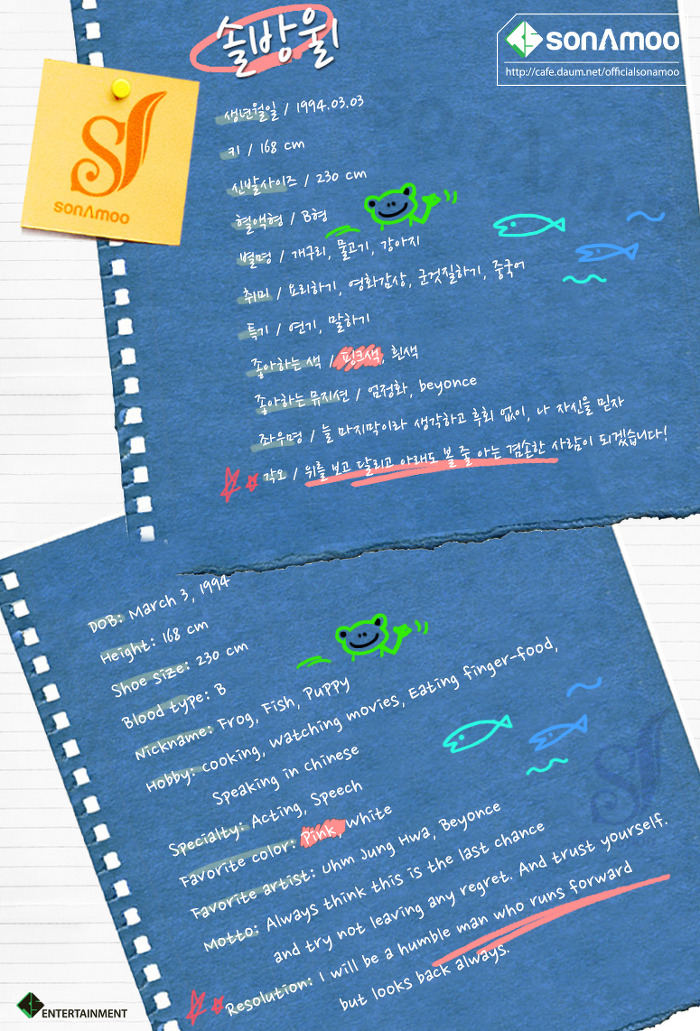 솔방울
SONAMOO
http://cafe.daum.net/officialsonamoo
SONAMOO
생년월일 / 1994.03.03
키 / 168 cm
신발사이즈 / 230 cm
혈액형 / B형
별명 / 개구리, 물고기, 강아지
취미 / 요리하기, 영화감상, 군것질하기, 중국어
특기 / 연기, 말하기
좋아하는 색 / 핑크색, 흰색
좋아하는 뮤지션 / 엄정화, beyonce
좌우명 / 늘 마지막이라 생각하고 후회 없이, 나 자신을 믿자
각오 / 위를 보고 달리고 아래도 볼 줄 아는 겸손한 사람이 되겠습니다!
DOB: March 3, 1994
Height: 168 cm
Shoe size: 230 cm
Blood type: B
Nickname: Frog, Fish, Puppy
Hobby: cooking, watching movies, Eating finger-food,
Speaking in chinese
Specialty: Acting, Speech
Favorite color: Pink, White
Favorite artist: Uhm Jung Hwa, Beyonce
Motto: Always think this is the last chance
and try not leaving any regret. And trust yourself.
Resolution: I will be a humble man who runs forward
but looks back always.
ENTERTAINMENT